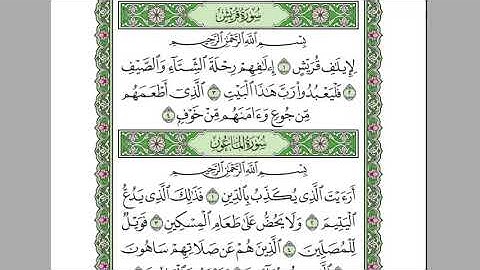 سُورَةُ قُرَيْشٍ
بِسْمِ ٱللَّهِ ٱلرَّحْمَٰنِ ٱلرَّحِيمِ
لِإِيلَٰفِ قُرَيْشٍ ١ إِۦلَٰفِهِمْ رِحْلَةَ ٱلشِّتَآءِ وَٱلصَّيْفِ
٢ فَلْيَعْبُدُوا۟ رَبَّ هَٰذَا ٱلْبَيْتِ ٣ ٱلَّذِىٓ أَطْعَمَهُم
مِّن جُوعٍ وَءَامَنَهُم مِّنْ خَوْفٍۭ ٤
سُورَةُ ٱلْمَاعُونِ
بِسْمِ ٱللَّهِ ٱلرَّحْمَٰنِ ٱلرَّحِيمِ
أَرَءَيْتَ ٱلَّذِى يُكَذِّبُ بِٱلدِّينِ ١ فَذَٰلِكَ ٱلَّذِى يَدُعُّ
ٱلْيَتِيمَ ٢ وَلَا يَحُضُّ عَلَىٰ طَعَامِ ٱلْمِسْكِينِ ٣ فَوَيْلٌ
لِّلْمُصَلِّينَ ٤ ٱلَّذِينَ هُمْ عَن صَلَاتِهِمْ سَاهُونَ